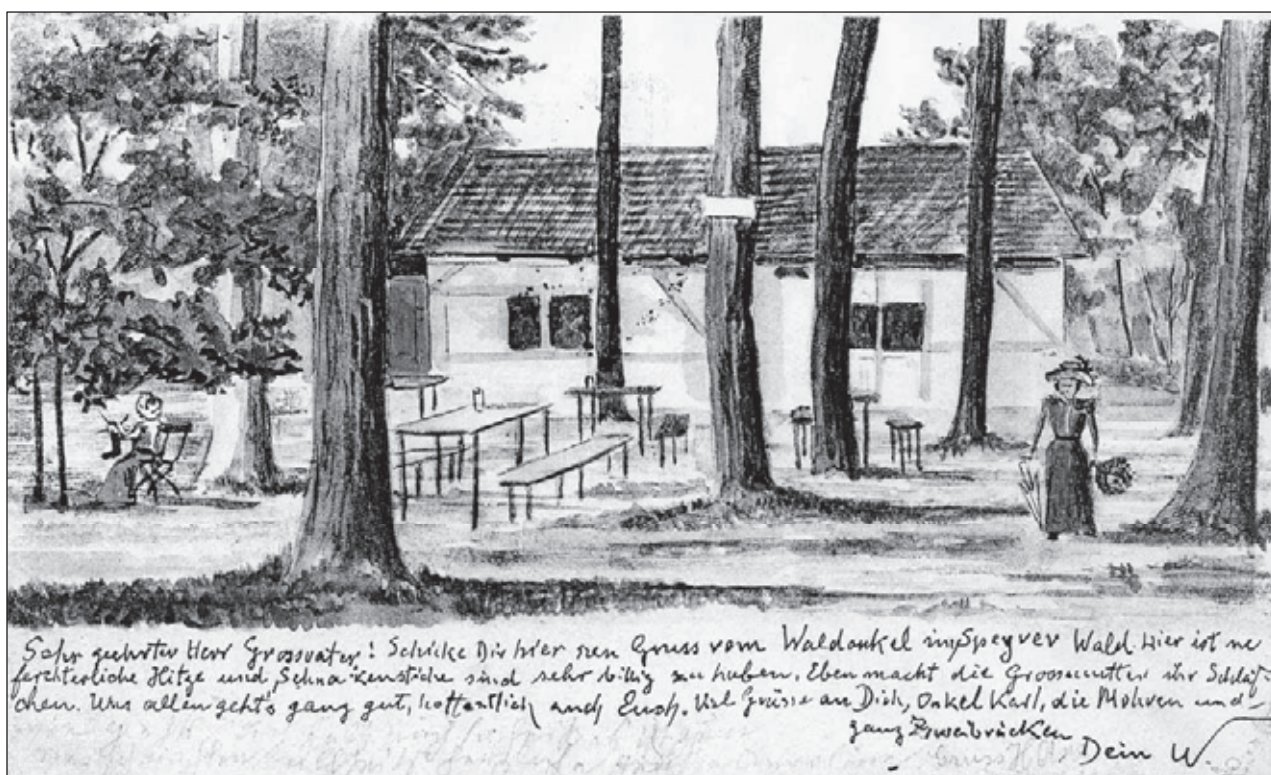 Sehr geehrter Herr Grossvater! Schicke Dir hier nen Gruss vom Waldonkel im Speyrer Wald. Hier ist ne
förchterliche Hitze und Schnakenstiche sind sehr billig zu haben. Eben macht die Grossmutter ihr Schläf-
chen. Uns allen geht's ganz gut, hoffentlich auch Euch. Viel Grüsse an Dich, Onkel Karl, die Mohren und
ganz Zweibrücken
Dein W.